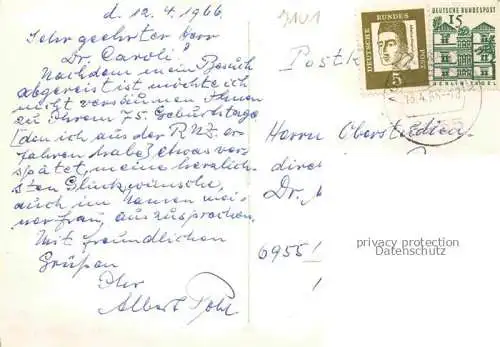 d. 12.4.1966
Sehr geehrter Herr
Dr. Caroli!
Nachdem mein Besuch
abgereist ist, möchte ich
nicht versäumen Ihnen
zu Ihrem 75. Geburtstage
[den ich aus der R.N.Z. er-
fahren habe] etwas ver-
spätet, meine herzlich-
sten Glückwünsche,
auch im Namen mei-
ner Frau auszusprechen.
Mit freundlichen
Grüßen
Ihr
Albert
Postk
DEUTSCHE BUNDES POST
5
DEUTSCHE BUNDESPOST
15
BERLIN-TEGEL
Herrn Oberstudien
direk
Dr.
6955
privacy protection
Datenschutz